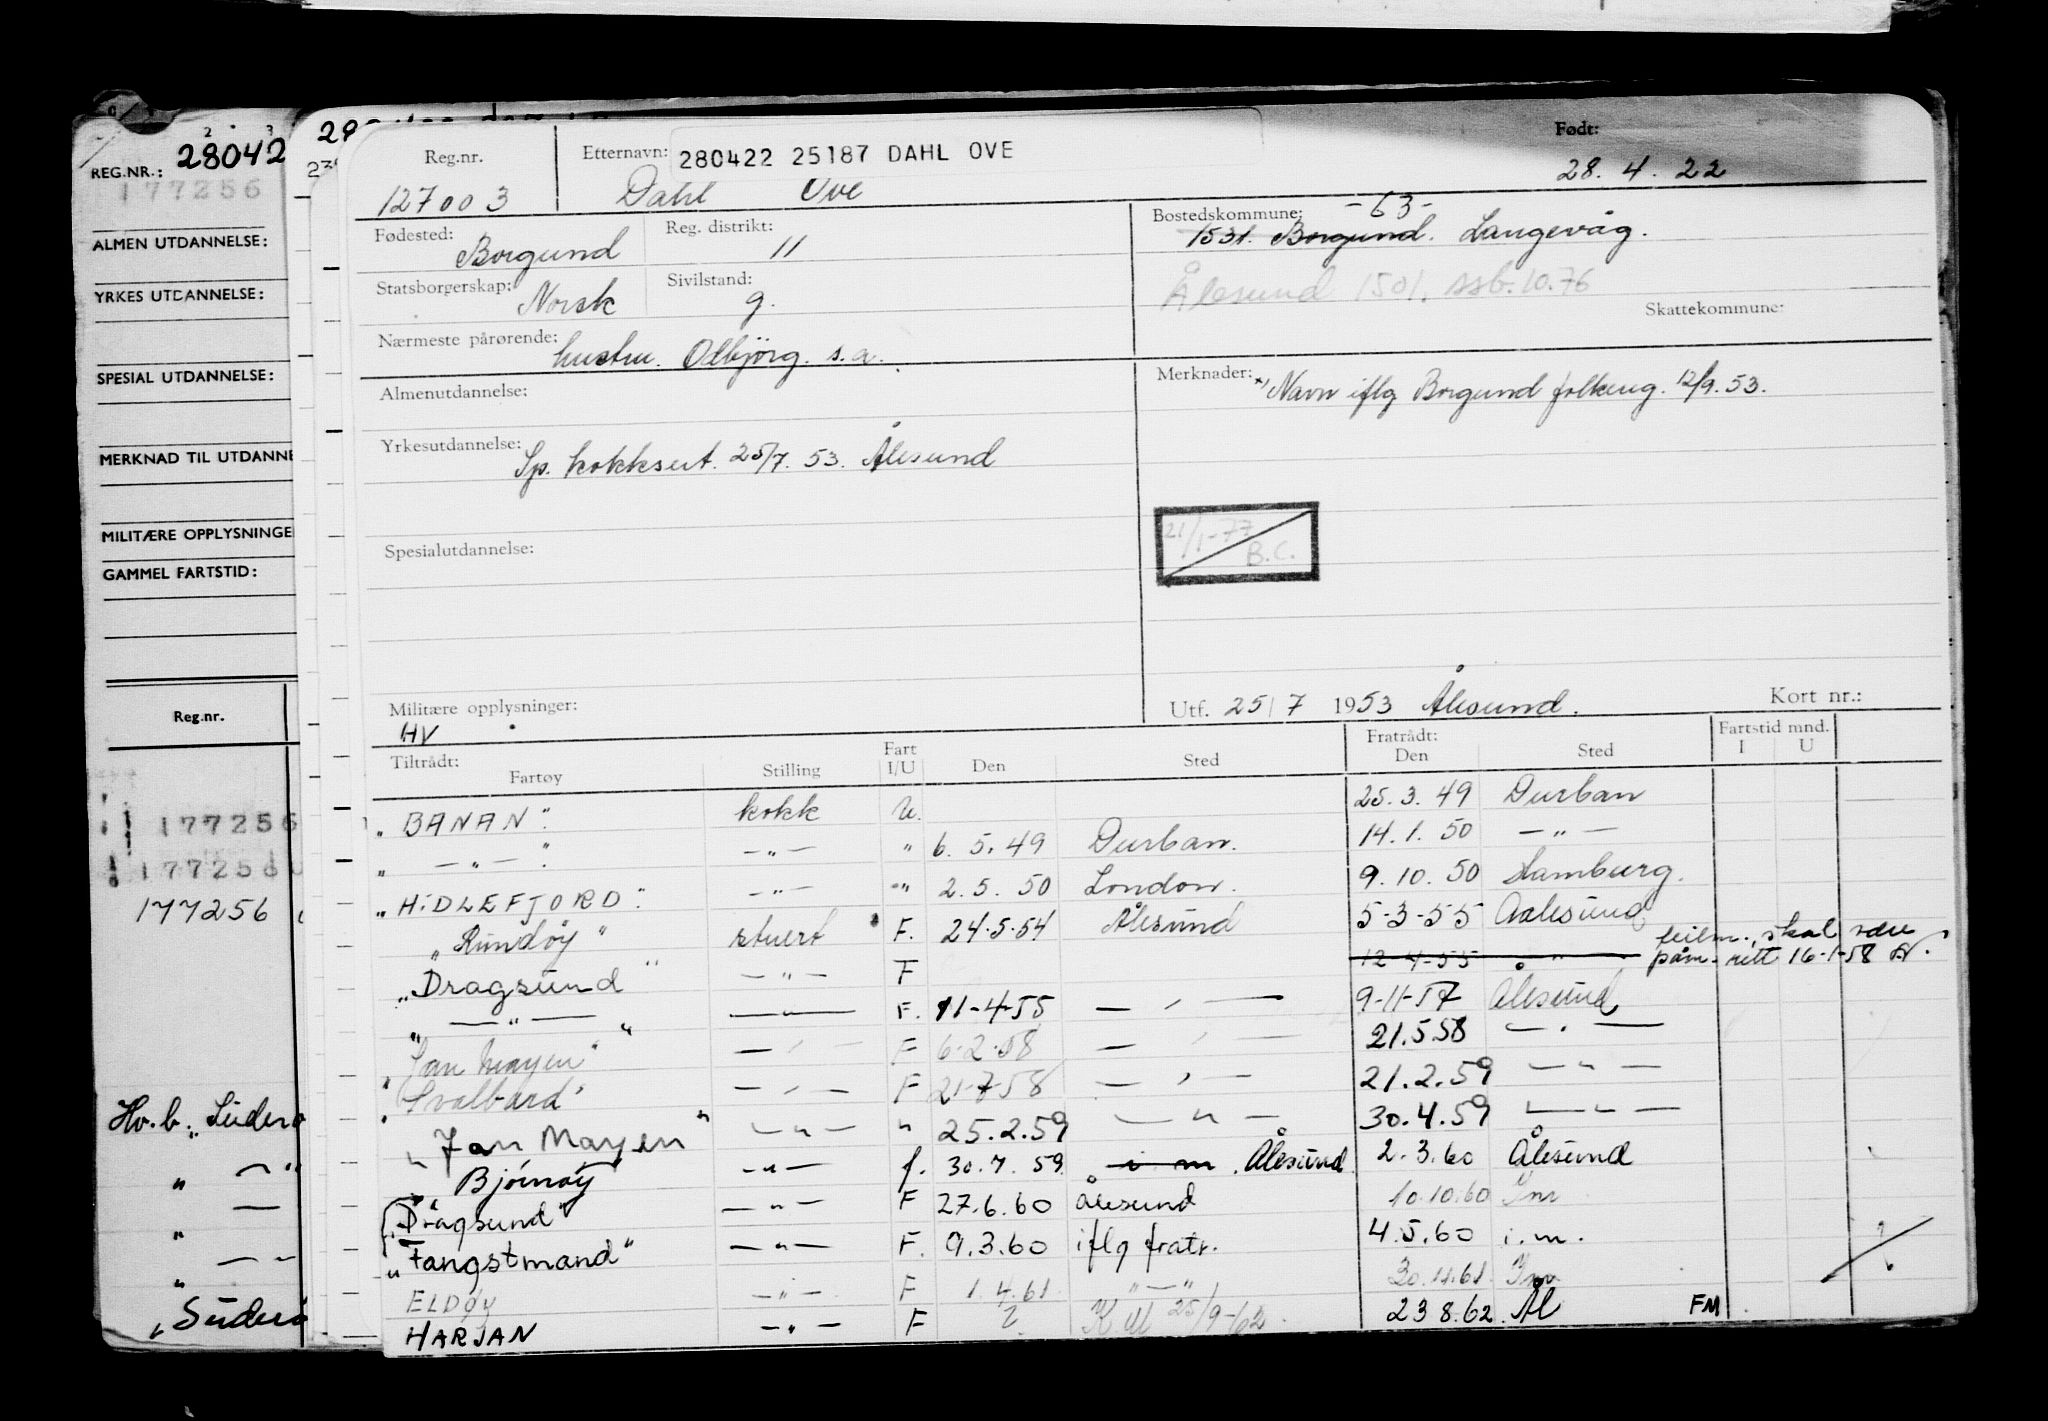 REG.NR.: 28042
177256
ALMEN UTDANNELSE:
YRKES UTDANNELSE:
SPESIAL UTDANNELSE:
MERKNAD TIL UTDANNE
MILITÆRE OPPLYSNINGE
GAMMEL FARTSTID:
Reg.nr.
177256
177256
177256
Hv.b. „Süderø
„ — " —
„ —
„ — " —
„Süderø
Reg.nr. Etternavn: 280422 25187 DAHL OVE Født:
127003 Dahl Ove 28. 4. 22
Fødested: Borgund Reg. distrikt: 11 Bostedskommune: - 63 -
1531. Borgund. Langevåg.
Statsborgerskap: Norsk Sivilstand: g. Ålesund 1501. ssb. 10.76
Skattekommune:
Nærmeste pårørende: hustru. Odbjörg. s.a.
Almenutdannelse: Merknader: x) Navn iflg Borgund folkereg. 12/9. 53.
Yrkesutdannelse: Sp. kokksert. 25/7. 53. Ålesund
21/1-77
B.C.
Spesialutdannelse:
Militære opplysninger: HV Utf. 25/7 1953 Ålesund. Kort nr.:
Tiltrådt: Fratrådt: Fartstid mnd.
Fartøy Stilling Fart I/U Den Sted Den Sted I U
„BANAN". kokk U. 25. 3. 49 Durban
„ — " — " — " — " 6. 5. 49 Durban. 14. 1. 50 — " —
„HIDLEFJORD". — " — " 2. 5. 50 London. 9. 10. 50 Hamburg.
„Rundöy" stuert F. 24-5-54 Ålesund 5-3-55 Aalesund
„Dragsund" — " — F 12-4-55 — " — feilm., skal være påm. rett 16-1-58
„ — " — " — " — F. 11-4-55 — " — 9-11-57 Ålesund
„Jan Mayen" — " — F 6-2-58 — " — 21.5.58 — " —
„Svalbard" — " — F 21-7-58 — " — 21.2.59 — " —
„Jan Mayen" — " — " 25.2.59 — " — 30.4.59 — " —
„Bjørnøy" — " — f. 30.7.59 i m. Ålesund 2.3.60 Ålesund
„Dragsund" — " — F 27.6.60 Ålesund 10.10.60 Im
„Fangstmand" — " — F. 9.3.60 iflg fratr. 4.5.60 i.m.
ELDØY — " — F 1.4.61 — " — 30.11.61 Im
HARJAN — " — F ? 25/9-62 23 8.62 Ål FM